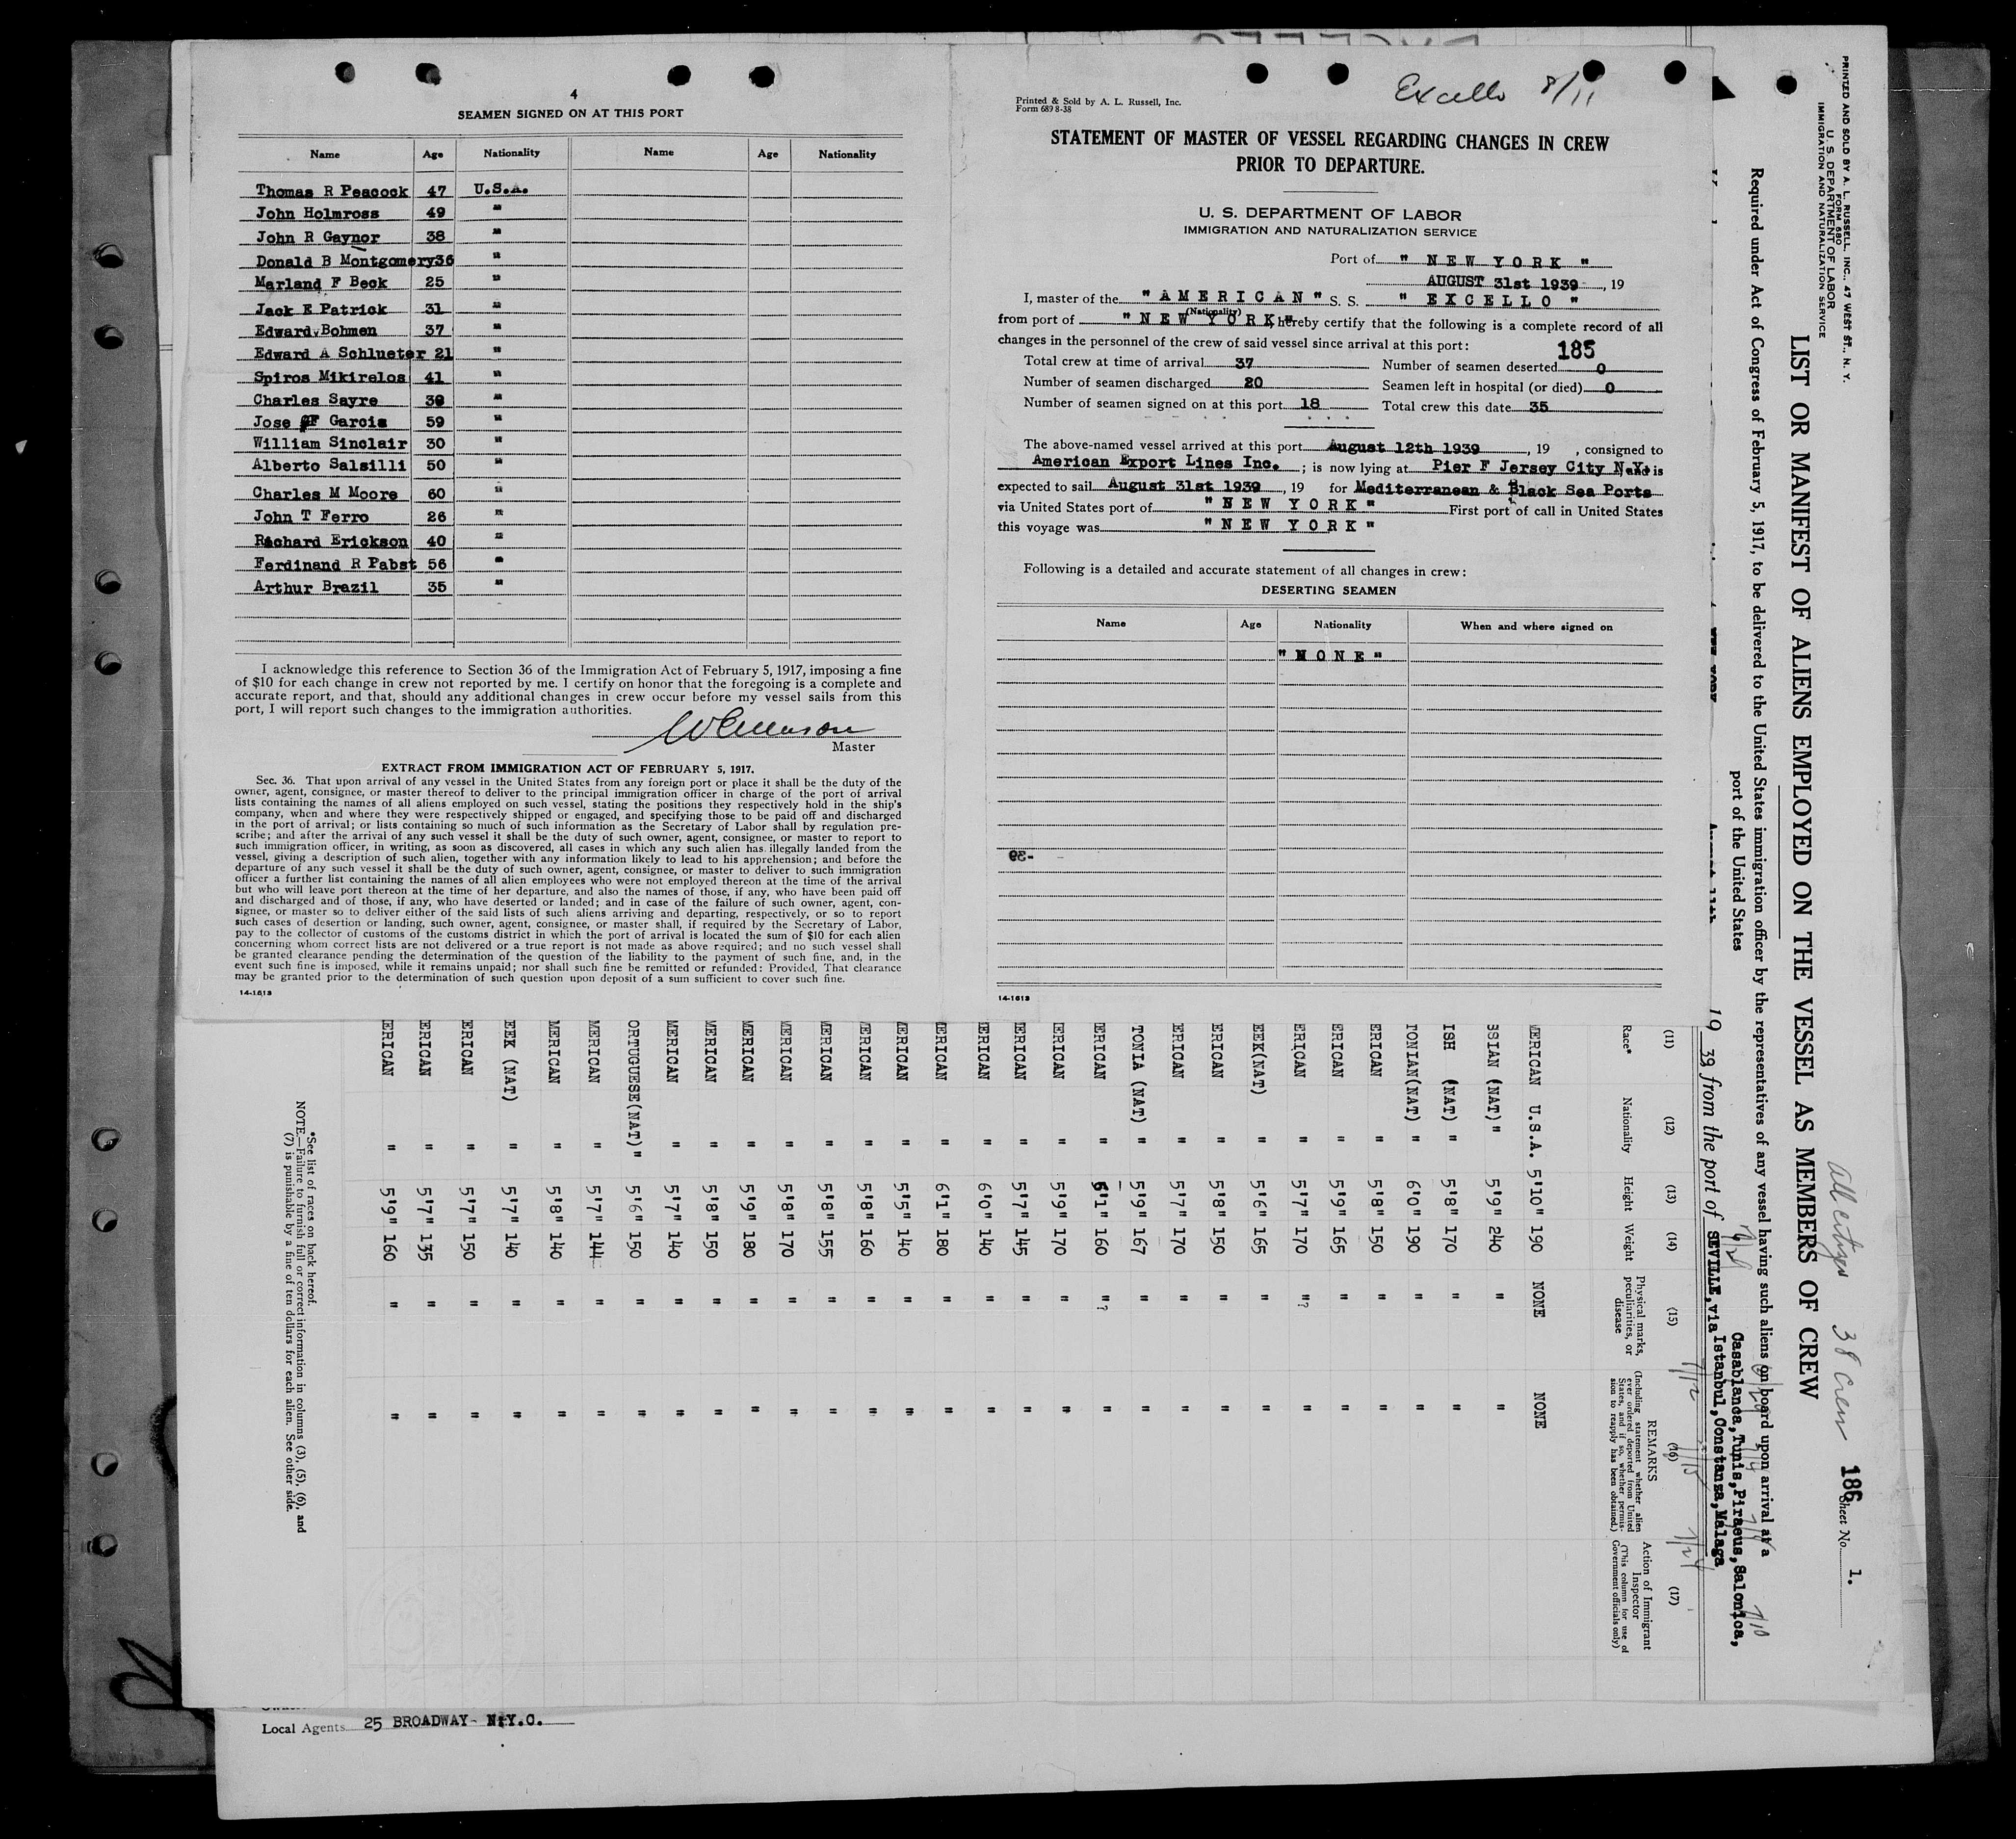 4
SEAMEN SIGNED ON AT THIS PORT
Name Age Nationality Name Age Nationality
Thomas R Peacock 47 U.S.A.
John Holmross 49 "
John R Gaynor 38 "
Donald B Montgomery 36 "
Marland F Beck 25 "
Jack E Patrick 31 "
Edward Bohmen 37 "
Edward A Schlueter 21 "
Spiros Mikirelos 41 "
Charles Sayre "
Jose F Garcia 59 "
William Sinclair 30 "
Alberto Salsilli 50 "
Charles M Moore 60 "
John T Ferro 26 "
Richard Erickson 40 "
Ferdinand R Pabst 56 "
Arthur Brazil 35 "
I acknowledge this reference to Section 36 of the Immigration Act of February 5, 1917, imposing a fine
of $10 for each change in crew not reported by me. I certify on honor that the foregoing is a complete and
accurate report, and that, should any additional changes in crew occur before my vessel sails from this
port, I will report such changes to the immigration authorities.
Master
EXTRACT FROM IMMIGRATION ACT OF FEBRUARY 5, 1917.
Sec. 36. That upon arrival of any vessel in the United States from any foreign port or place it shall be the duty of the
owner, agent, consignee, or master thereof to deliver to the principal immigration officer in charge of the port of arrival
lists containing the names of all aliens employed on such vessel, stating the positions they respectively hold in the ship's
company, when and where they were respectively shipped or engaged, and specifying those to be paid off and discharged
in the port of arrival; or lists containing so much of such information as the Secretary of Labor shall by regulation pre-
scribe; and after the arrival of any such vessel it shall be the duty of such owner, agent, consignee, or master to report to
such immigration officer, in writing, as soon as discovered, all cases in which any such alien has illegally landed from the
vessel, giving a description of such alien, together with any information likely to lead to his apprehension; and before the
departure of any such vessel it shall be the duty of such owner, agent, consignee, or master to deliver to such immigration
officer a further list containing the names of all alien employees who were not employed thereon at the time of the arrival
but who will leave port thereon at the time of her departure, and also the names of those, if any, who have been paid off
and discharged and of those, if any, who have deserted or landed; and in case of the failure of such owner, agent, con-
signee, or master so to deliver either of the said lists of such aliens arriving and departing, respectively, or so to report
such cases of desertion or landing, such owner, agent, consignee, or master shall, if required by the Secretary of Labor,
pay to the collector of customs of the customs district in which the port of arrival is located the sum of $10 for each alien
concerning whom correct lists are not delivered or a true report is not made as above required; and no such vessel shall
be granted clearance pending the determination of the question of the liability to the payment of such fine, and, in the
event such fine is imposed, while it remains unpaid; nor shall such fine be remitted or refunded: Provided, That clearance
may be granted prior to the determination of such question upon deposit of a sum sufficient to cover such fine.
14-1613
Excello 8/11
Printed & Sold by A. L. Russell, Inc.
Form 689 8-38
STATEMENT OF MASTER OF VESSEL REGARDING CHANGES IN CREW
PRIOR TO DEPARTURE.
U. S. DEPARTMENT OF LABOR
IMMIGRATION AND NATURALIZATION SERVICE
Port of " NEW YORK "
AUGUST 31st 1939, 19
I, master of the " AMERICAN " S. S. " EXCELLO "
(Nationality)
from port of " NEW YORK " hereby certify that the following is a complete record of all
changes in the personnel of the crew of said vessel since arrival at this port:
185
Total crew at time of arrival 37 Number of seamen deserted 0
Number of seamen discharged 20 Seamen left in hospital (or died) 0
Number of seamen signed on at this port 18 Total crew this date 35
The above-named vessel arrived at this port August 12th 1939, 19 , consigned to
American Export Lines Inc. ; is now lying at Pier F Jersey City N.Y. and is
expected to sail August 31st 1939, 19 for Mediterranean & Black Sea Ports
via United States port of " NEW YORK " First port of call in United States
this voyage was " NEW YORK "
Following is a detailed and accurate statement of all changes in crew:
DESERTING SEAMEN
Name Age Nationality When and where signed on
" NONE "
14-1613
PRINTED AND SOLD BY A. L. RUSSELL, INC., 47 WEST ST., N. Y.
FORM 680
U. S. DEPARTMENT OF LABOR
IMMIGRATION AND NATURALIZATION SERVICE
All citizens 38 Crew 186 Sheet No. 1.
LIST OR MANIFEST OF ALIENS EMPLOYED ON THE VESSEL AS MEMBERS OF CREW
Required under Act of Congress of February 5, 1917, to be delivered to the United States immigration officer by the representatives of any vessel having such aliens on board upon arrival at a
port of the United States
Casablanca, Tunis, Piraeus, Salonica,
19 39 from the port of SEVILLE, via Istanbul, Constanza, Malaga
(11) (12) (13) (14) (15) (16) (17)
Race* Nationality Height Weight Physical marks, peculiarities, or disease REMARKS (Including statement whether alien ever ordered deported from United States, and if so, whether permission to reapply has been obtained.) Action of Immigrant Inspector (This column for use of Government officials only)
ERICAN U.S.A. 5'10" 190 NONE NONE
SSIAN (NAT) " 5'9" 240 " "
ISH (NAT) " 5'8" 170 " "
TONIAN(NAT) " 6'0" 190 " "
ERICAN " 5'8" 150 " "
ERICAN " 5'9" 165 " "
ERICAN " 5'7" 170 "? "
EEK(NAT) " 5'6" 165 " "
ERICAN " 5'8" 150 " "
ERICAN " 5'7" 170 " "
TONIA (NAT) " 5'9" 167 " "
ERICAN " 6'1" 160 "? "
ERICAN " 5'9" 170 " "
ERICAN " 5'7" 145 " "
ERICAN " 6'0" 140 " "
ERICAN " 6'1" 180 " "
ERICAN " 5'5" 140 " "
ERICAN " 5'8" 160 " "
MERICAN " 5'8" 155 " "
MERICAN " 5'8" 170 " "
MERICAN " 5'9" 180 " "
MERICAN " 5'8" 150 " "
MERICAN " 5'7" 140 " "
ORTUGUESE(NAT) " 5'6" 150 " "
MERICAN " 5'7" 144 " "
MERICAN " 5'8" 140 " "
EEK (NAT) " 5'7" 140 " "
ERICAN " 5'7" 150 " "
ERICAN " 5'7" 135 " "
ERICAN " 5'9" 160 " "
*See list of races on back hereof.
NOTE.—Failure to furnish full or correct information in columns (3), (5), (6), and
(7) is punishable by a fine of ten dollars for each alien. See other side.
Local Agents 25 BROADWAY- N.Y.C.